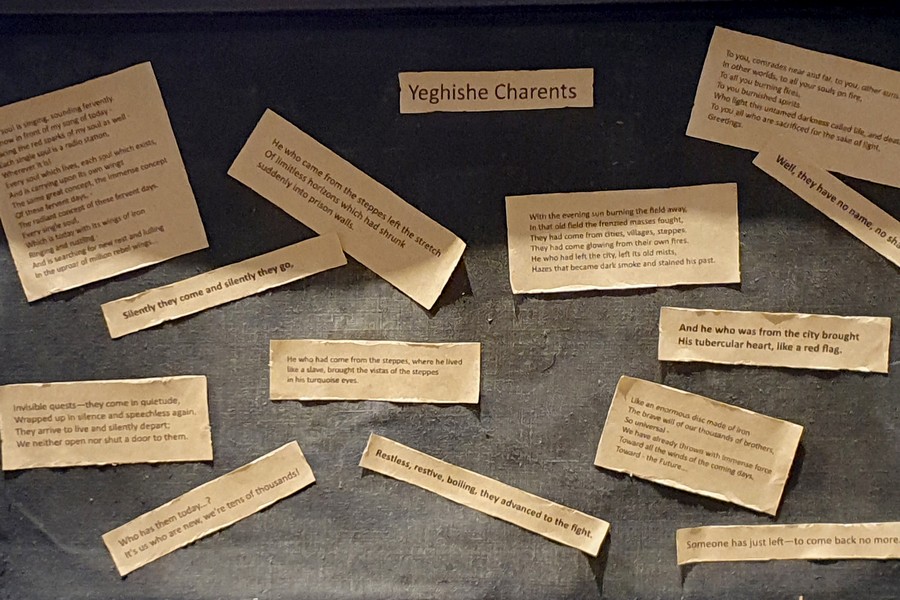 Yeghishe Charents
soul is singing, sounding fervently
now in front of my song of today
ing the red sparks of my soul as well
Each single soul is a radio station,
Wherever it is!
Every soul which lives, each soul which exists,
And is carrying upon its own wings
The same great concept, the immense concept
Of these fervent days,
The radiant concept of these fervent days.
Every single soul,
Which is today with its wings of iron
Ringing and rustling
And is searching for new rest and lulling
In the uproar of million rebel wings...
He who came from the steppes left the stretch
Of limitless horizons which had shrunk
suddenly into prison walls.
To you, comrades near and far, to you, other suns
In other worlds, to all your souls on fire,
To all you burning fires,
To you burnished spirits
Who light this untamed darkness called life, and
To you all who are sacrificed for the sake of light,
Greetings.
Well, they have no name, no
With the evening sun burning the field away,
In that old field the frenzied masses fought,
They had come from cities, villages, steppes.
They had come glowing from their own fires.
He who had left the city, left its old mists,
Hazes that became dark smoke and stained his past.
Silently they come and silently they go,
And he who was from the city brought
His tubercular heart, like a red flag.
He who had come from the steppes, where he lived
like a slave, brought the vistas of the steppes
in his turquoise eyes.
Invisible quests—they come in quietude,
Wrapped up in silence and speechless again.
They arrive to live and silently depart;
We neither open nor shut a door to them.
Like an enormous disc made of iron
The brave will of our thousands of brothers,
So universal -
We have already thrown with immense force
Toward all the winds of the coming days,
Toward - the Future...
Who has them today...?
It's us who are new, we're tens of thousands!
Restless, restive, boiling, they advanced to the fight.
Someone has just left—to come back no more.